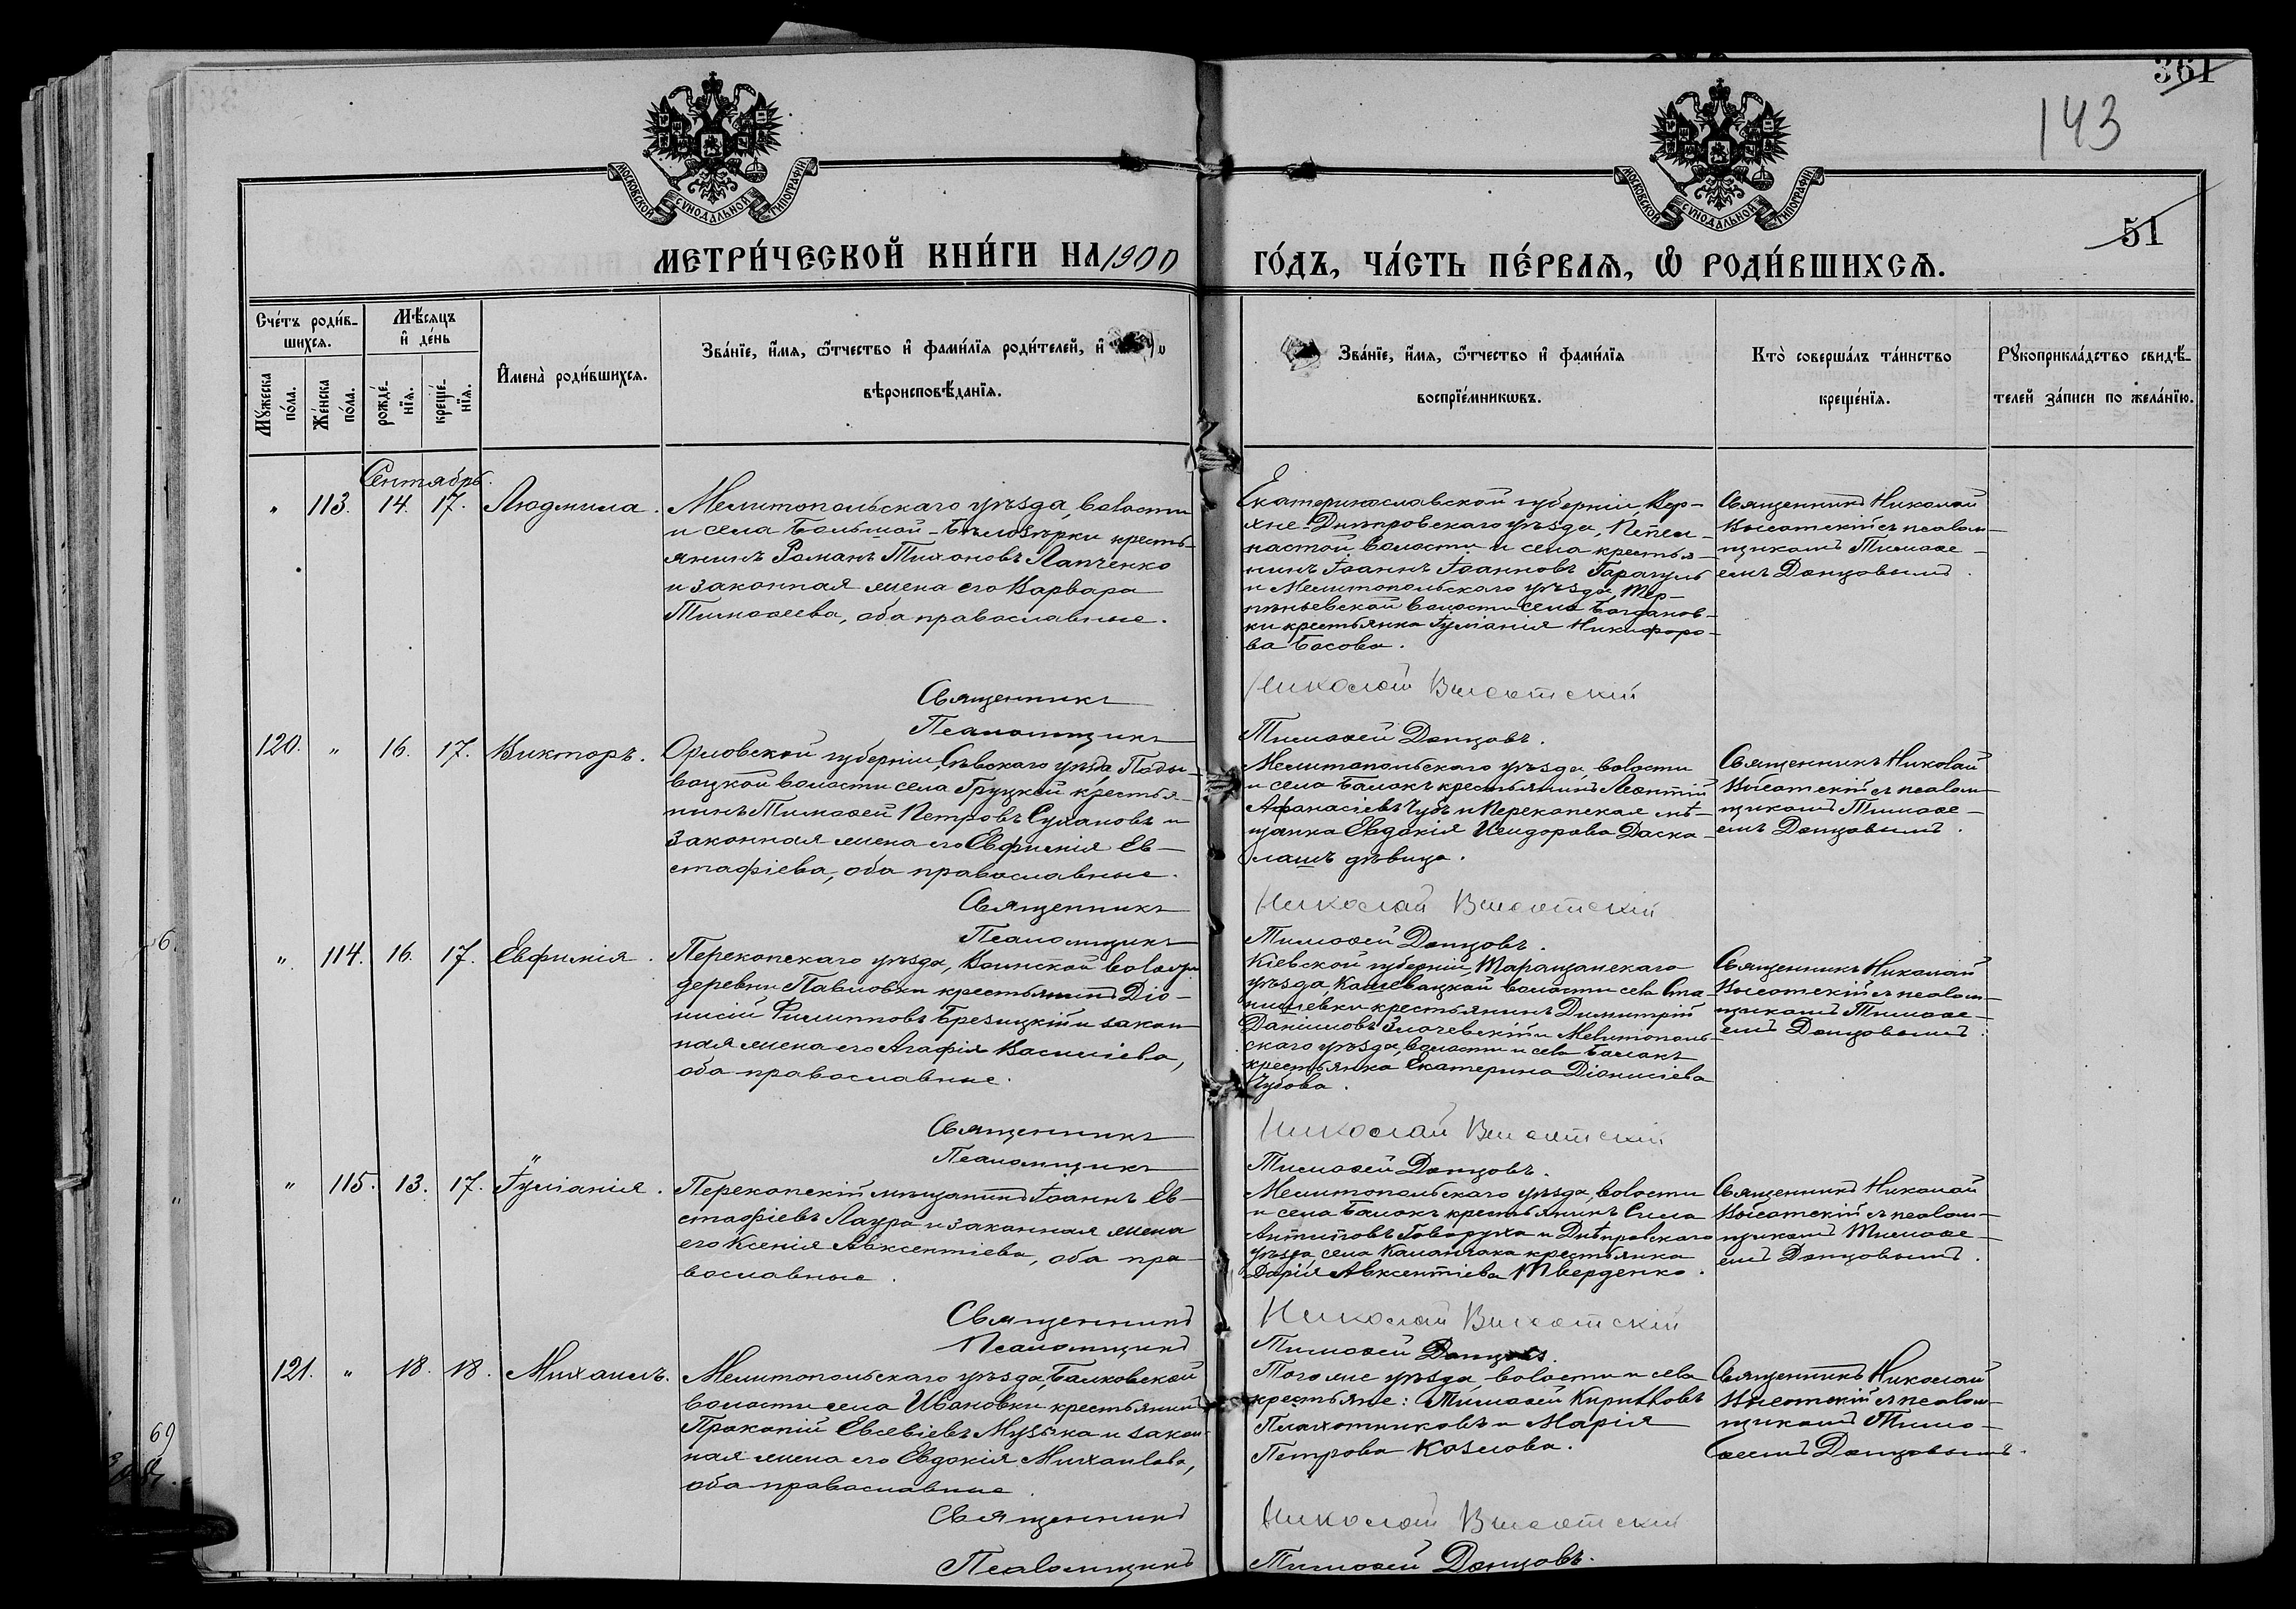 361
143
51
МОСКОВСКОЙ СѴНОДАЛЬНОЙ ТИПОГРАФІИ
МОСКОВСКОЙ СѴНОДАЛЬНОЙ ТИПОГРАФІИ
МЕТРИ́ЧЕСКОЙ КНИ́ГИ НА 1900
ГО́ДЪ, ЧА́СТЬ ПЕ́РВАѦ, Ѽ РОДИ́ВШИХСѦ.
Сче́тъ роди́в-
шихсѧ.
Мѣ́сѧцъ
и҆ де́нь
Мꙋ́жеска
по́ла.
Же́нска
по́ла.
рожде́-
нїѧ.
креще́-
нїѧ.
И҆мена̀ роди́вшихсѧ.
Зва́нїе, и҆́мѧ, ѻ҆́тчество и҆ фами́лїѧ роди́телей, и҆
вѣроисповѣ́данїѧ.
Зва́нїе, и҆́мѧ, ѻ҆́тчество и҆ фами́лїѧ
воспрїе́мникѡвъ.
Кто̀ соверша́лъ та́инство
креще́нїѧ.
Рꙋкоприкла́дство свидѣ́-
телей за́писи по жела́нїю.
Сентябрь.
" 113. 14. 17. Людмила.
Мелитопольскаго уѣзда, волости
и села Большой-Бѣлозѣрки кресть-
янинъ Романъ Тихоновъ Лапченко
и законная жена его Варвара
Тимоѳеева, оба православные.
Екатеринославской губерніи, Вер-
хне-Днѣпровскаго уѣзда,
волости и села крестья-
нинъ Іоаннъ Іоанновъ Гарагуль
и Мелитопольскаго уѣзда, Тер-
пѣньевской волости села Богданов-
ки крестьянка Іуліанія Никифоро-
ва Басова.
Священникъ Николай
Высотскій съ псалом-
щикомъ Тимоѳе-
емъ Донцовымъ.
Священникъ
Николай Высотскій
Псаломщикъ
Тимоѳей Донцовъ.
120. " 16. 17. Викторъ.
Орловской губерніи, Сѣвскаго уѣзда, Поды-
воцкой волости села Груцкой крестья-
нинъ Тимоѳей Петровъ Сухановъ и
законная жена его Евфимія Ев-
стафіева, оба православные.
Мелитопольскаго уѣзда, волости
и села Балокъ крестьянинъ Леонтій
Афанасіевъ Чубъ и Перекопская мѣ-
щанка Евдокія Исидорова Даска-
лашъ дѣвица.
Священникъ Николай
Высотскій съ псалом-
щикомъ Тимоѳе-
емъ Донцовымъ.
Священникъ
Николай Высотскій
Псаломщикъ
Тимоѳей Донцовъ.
" 114. 16. 17. Евфимія.
Перекопскаго уѣзда, Воинской волости
деревни Павловки крестьянинъ Діо-
нисій Филипповъ Брезицкій и закон-
ная жена его Агафія Василіева,
оба православные.
Кіевской губерніи, Таращанскаго
уѣзда, Кошевацкой волости села Сна-
крестьянинъ Димитрій
Даніиловъ и Мелитополь-
скаго уѣзда, волости и села Балокъ
крестьянка Екатерина Діонисіева
Чубова.
Священникъ Николай
Высотскій съ псалом-
щикомъ Тимоѳе-
емъ Донцовымъ.
Священникъ
Николай Высотскій
Псаломщикъ
Тимоѳей Донцовъ.
" 115. 13. 17. Іуліанія.
Перекопскій мѣщанинъ Іоаннъ Ев-
стафіевъ Лаура и законная жена
его Ксенія Авксентіева, оба пра-
вославные.
Мелитопольскаго уѣзда, волости
и села Балокъ крестьянинъ Сила
Антиповъ Говоруха и Днѣпровскаго
уѣзда села Каланчака крестьянка
Дарія Авксентіева Тверденко.
Священникъ Николай
Высотскій съ псалом-
щикомъ Тимоѳе-
емъ Донцовымъ.
Священникъ
Николай Высотскій
Псаломщикъ
Тимоѳей Донцовъ.
121. " 18. 18. Михаилъ.
Мелитопольскаго уѣзда, Балковской
волости села Ивановки крестьянинъ
Прокопій Евсевіевъ Музыка и закон-
ная жена его Евдокія Михаилова,
оба православные.
Того же уѣзда, волости и села
крестьяне: Тимоѳей Кирилловъ
Плахотниковъ и Марія
Петрова Козлова.
Священникъ Николай
Высотскій съ псалом-
щикомъ Тимо-
ѳеемъ Донцовымъ.
Священникъ
Николай Высотскій
Псаломщикъ
Тимоѳей Донцовъ.